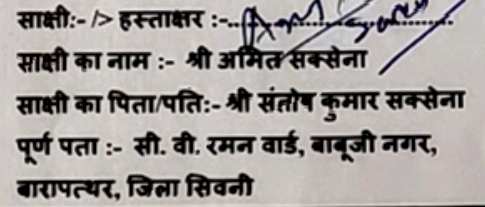 साक्षी:- /> हस्ताक्षर :-..
साक्षी का नाम :- श्री अमित सक्सेना
साक्षी का पिता/पति:- श्री संतोष कुमार सक्सेना
पूर्ण पता :- सी. वी. रमन वार्ड, बाबूजी नगर,
बारापत्थर, जिला सिवनी